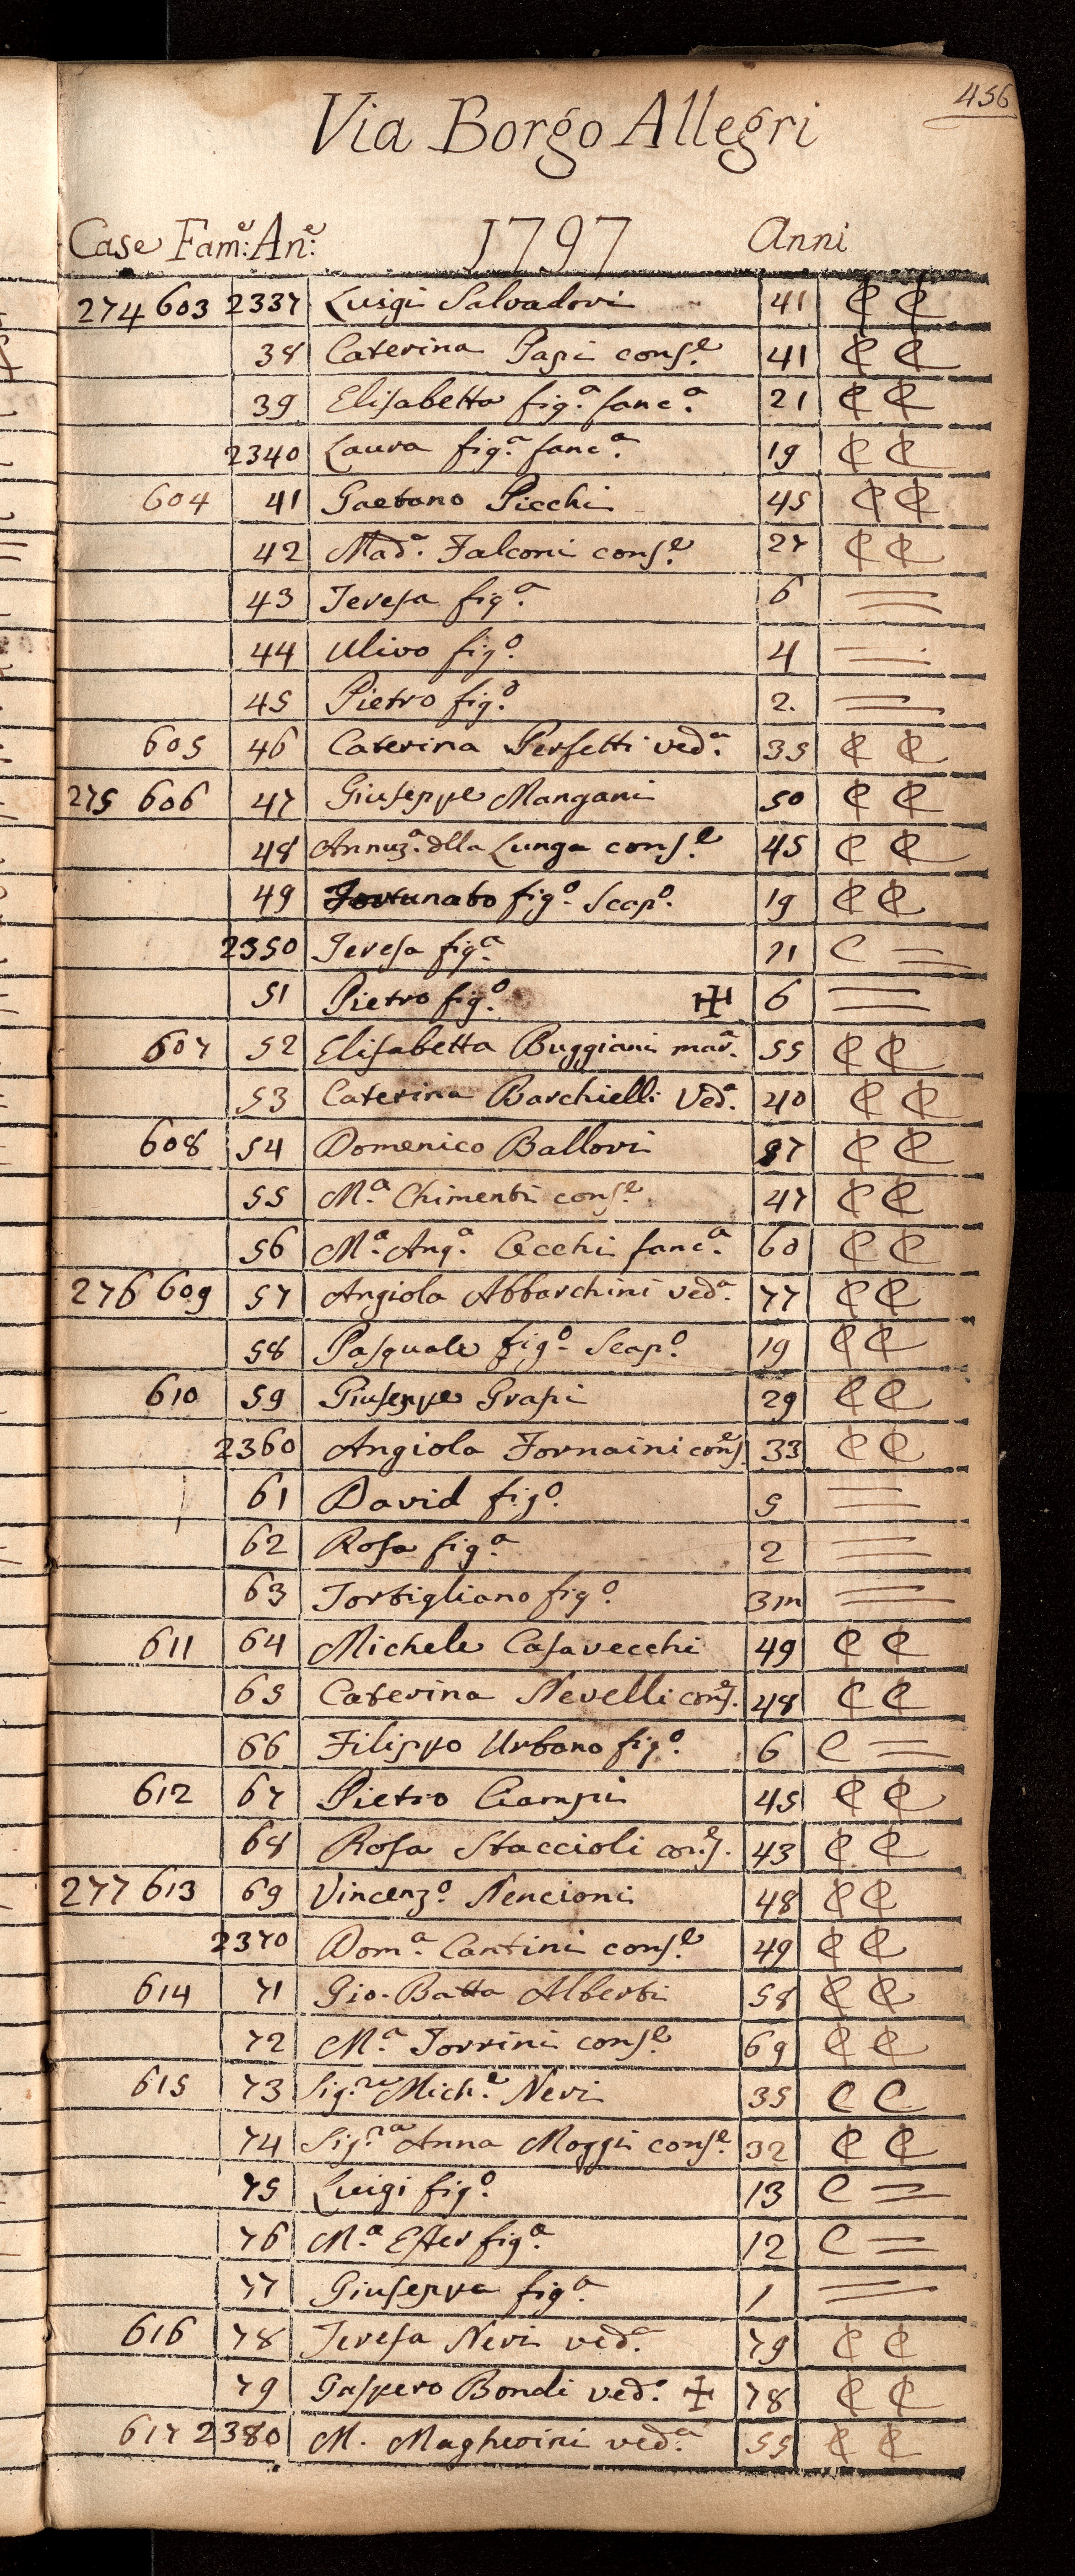 456
Via Borgo Allegri
Case Fam:e An:e 1797 Anni
274 603 2337 Luigi Salvadori 41 C C
38 Caterina Papi cons.e 41 C C
39 Elisabetta fig.a fanc.a 21 C C
2340 Laura fig.a fanc.a 19 C C
604 41 Gaetano Picchi 45 C C
42 Mad.a Falconi cons.e 27 C C
43 Teresa fig.a 6 =
44 Ulivo fig.o 4 =
45 Pietro fig.o 2. =
605 46 Caterina Perfetti ved.a 35 C C
275 606 47 Giuseppe Mangani 50 C C
48 Annuz.a dlla Lunga cons.e 45 C C
49 Fortunato fig.o Scap.o 19 C C
2350 Teresa fig.a 11 C =
51 Pietro fig.o ✠ 6 =
607 52 Elisabetta Buggiani mar.a 55 C C
53 Caterina Barchielli Ved.a 40 C C
608 54 Domenico Ballori 57 C C
55 M.a Chimenti cons.e 47 C C
56 M.a Ang.a Cecchi fanc.a 60 C C
276 609 57 Angiola Abbarchini ved.a 77 C C
58 Pasquale fig.o Scap.o 19 C C
610 59 Giuseppe Grapi 29 C C
2360 Angiola Fornaini cons.e 33 C C
61 David fig.o 5 =
62 Rosa fig.a 2 =
63 Torbigliano fig.o 3m =
611 64 Michele Casavecchi 49 C C
65 Caterina Nevelli cons.e 48 C C
66 Filippo Urbano fig.o 6 C =
612 67 Pietro Ciampi 45 C C
68 Rosa Staccioli cons.e 43 C C
277 613 69 Vincenz.o Nencioni 48 C C
2370 Dom.a Cantini cons.e 49 C C
614 71 Gio. Batta Alberti 58 C C
72 M.a Torrini cons.e 69 C C
615 73 Sig.re Mich.e Neri 35 C C
74 Sig.ra Anna Moggi cons.e 32 C C
75 Luigi fig.o 13 C =
76 M.a Ester fig.a 12 C =
77 Giuseppa fig.a 1 =
616 78 Teresa Neri ved.a 79 C C
79 Gaspero Bondi ved.o ✠ 78 C C
617 2380 M. Magherini ved.a 55 C C